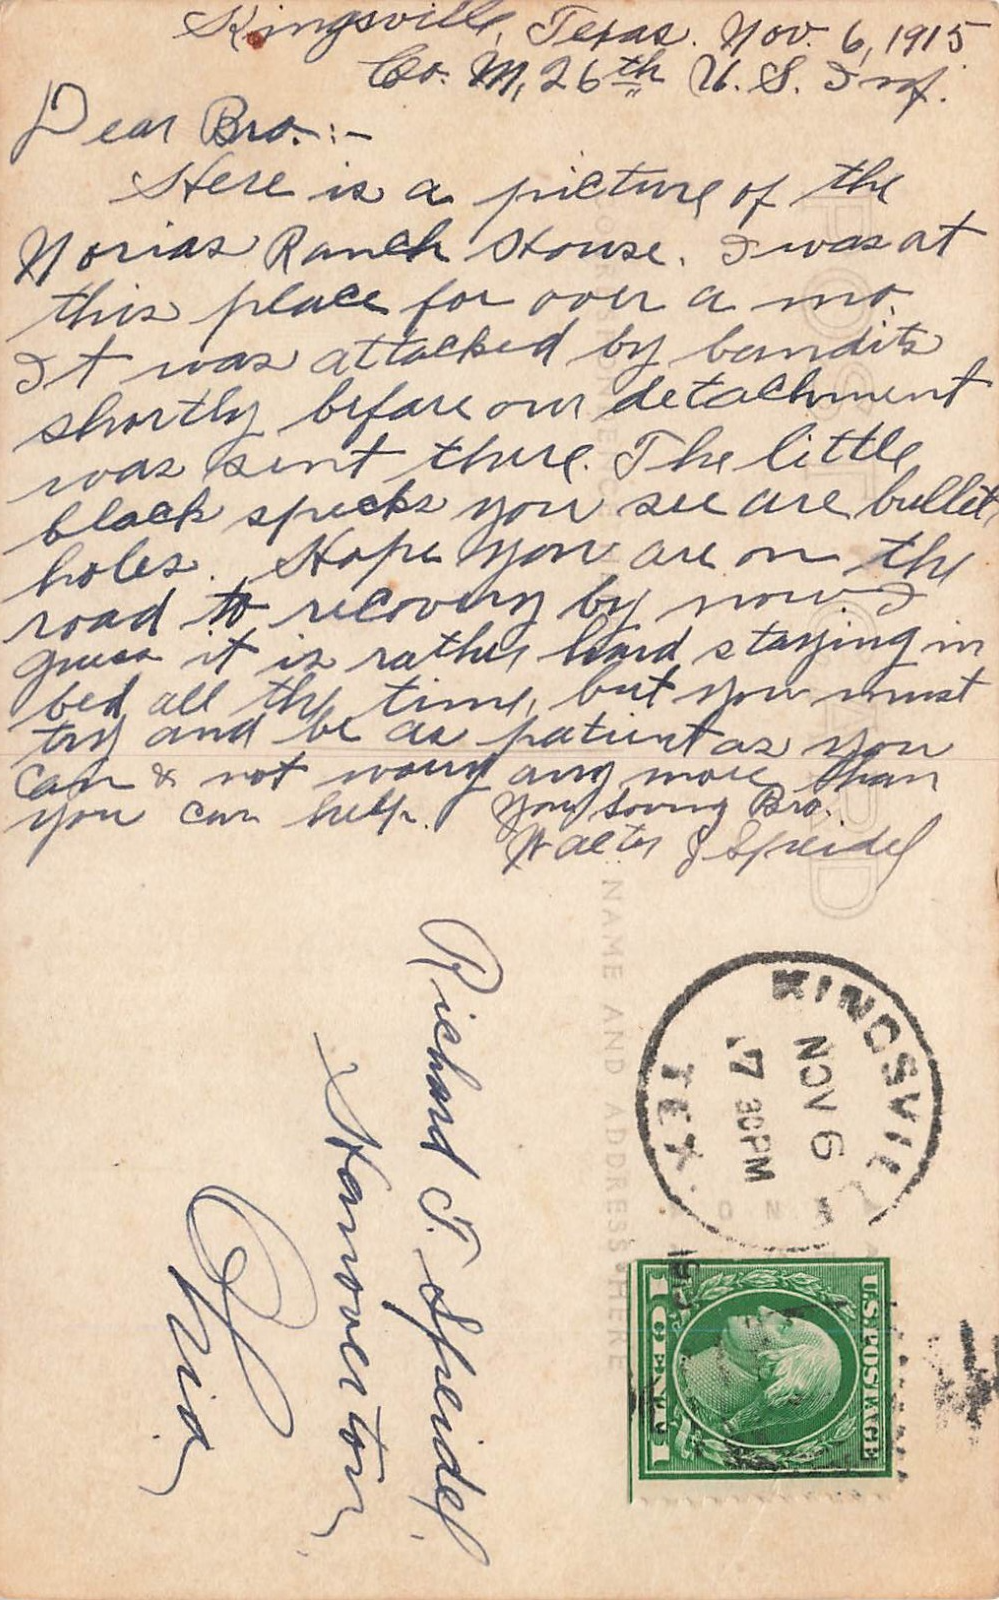 Kingsville, Texas. Nov. 6, 1915
Co. M, 26th U.S. Inf.
Dear Bro.:-
Here is a picture of the
Norias Ranch House. I was at
this place for over a mo.
It was attacked by bandits
shortly before our detachment
was sent there. The little
black specks you see are bullet
holes. Hope you are on the
road to recovery by now. I
guess it is rather hard staying in
bed all the time, but you must
try and be as patient as you
can & not worry any more than
you can help. Your loving Bro.
Walter J Speidel
POST CARD
NAME AND ADDRESS HERE
Richard T. Speidel
Hanoverton
Ohio
KINGSVILL
TEX.
NOV 6
7 30PM
U.S. POSTAGE
1 CENT 1